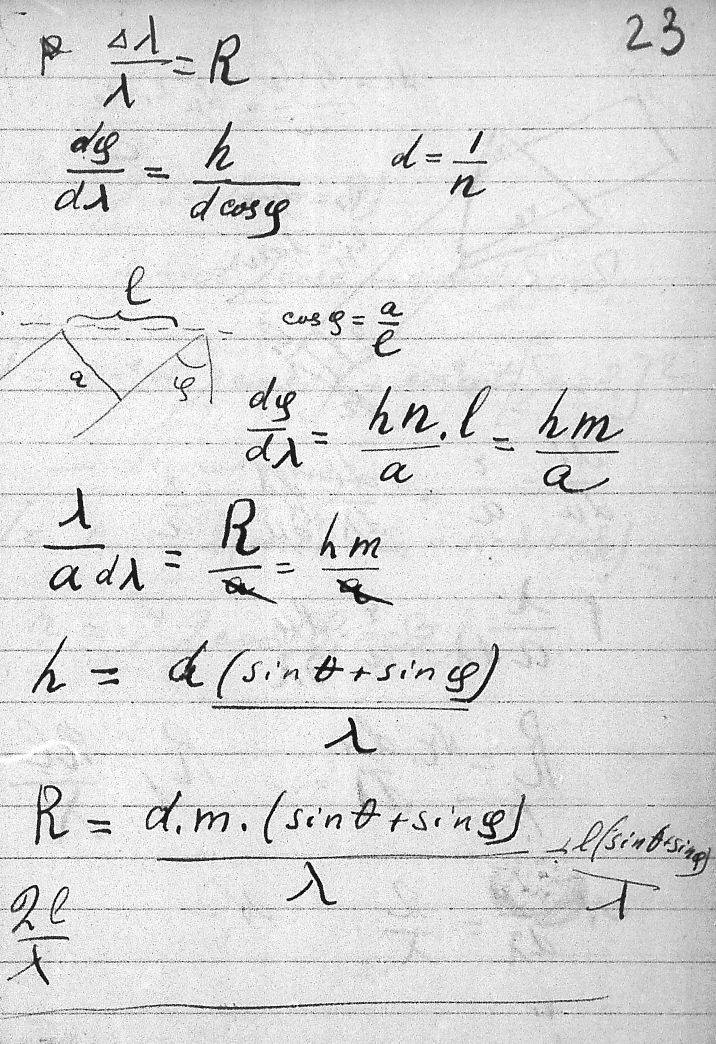 23
Δλ/λ = R
dφ/dλ = h/(d cosφ) d = 1/n
l
cosφ = a/l
a φ
dφ/dλ = hn.l/a = hm/a
λ/(a dλ) = R/a = hm/a
h = d(sinθ + sinφ)/λ
R = d.m.(sinθ + sinφ)/λ = l(sinθ+sinφ)/λ
2l/λ